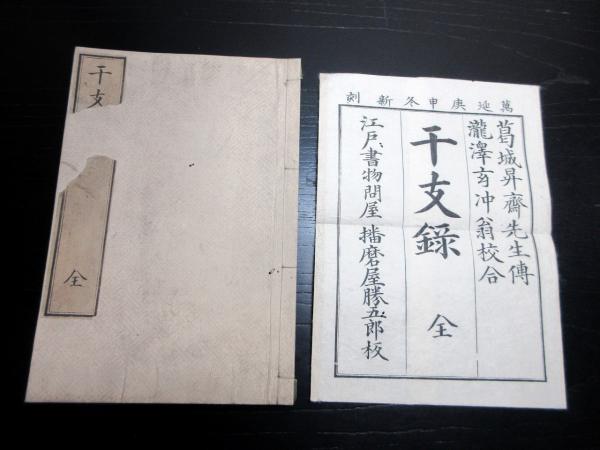 干支
全
萬延庚申冬新刻
葛城昇齋先生傳
瀧澤玄冲翁校合
干支錄 全
江戶書物問屋 播磨屋勝五郎板